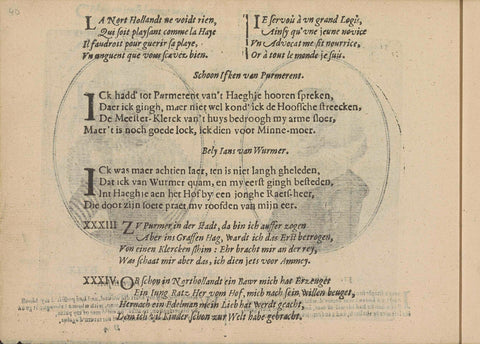 40
LA Nort Hollandt ne voidt rien,
Qui soit playsant comme la Haye
Il faudroit pour guerir sa playe,
Vn anguent que vous scavez bien.
IE servoü à vn grand Logis,
Ainsy qu'vne jeune novice
Vn Advocat me fit nourrice,
Or à tout le monde je suis.
Schoon Isken van Purmerent.
ICk hadd' tot Purmerent van't Haeghje hooren spreken,
Daer ick gingh, maer niet wel kond' ick de Hoofsche streecken,
De Meester-Klerck van't huys bedroogh my arme sloer,
Maer't is noch goede lock, ick dien voor Minne-moer.
Bely Ians van Wurmer.
ICk was maer achtien Iaer, ten is niet langh gheleden,
Dat ick van Wurmer quam, en my eerst gingh besteden,
Int Haeghje aen het Hof by een jonghe Raets-heer,
Die door zijn soete praet my roofden van mijn eer.
XXXIII ZV Purmer in der Stadt, da bin ich ausser zogen
Aber ins Graffen Hag, wardt ich das Erst betrogen,
Von einen Klercken shim: Ehr bracht mir an der rey,
Was schaat mir aber das, ich dien jets vor Ammey.
XXXIV OB schon in Northollandt ein Bawr mich hat Erzeuget
Ein Iung Ratz Her vom Hof, mich nach sein willen beuget,
Hernach ein Edelman mein in Lieb hat werdt geacht,
Dem ich vil Kinder schon zur Welt habe gebracht.